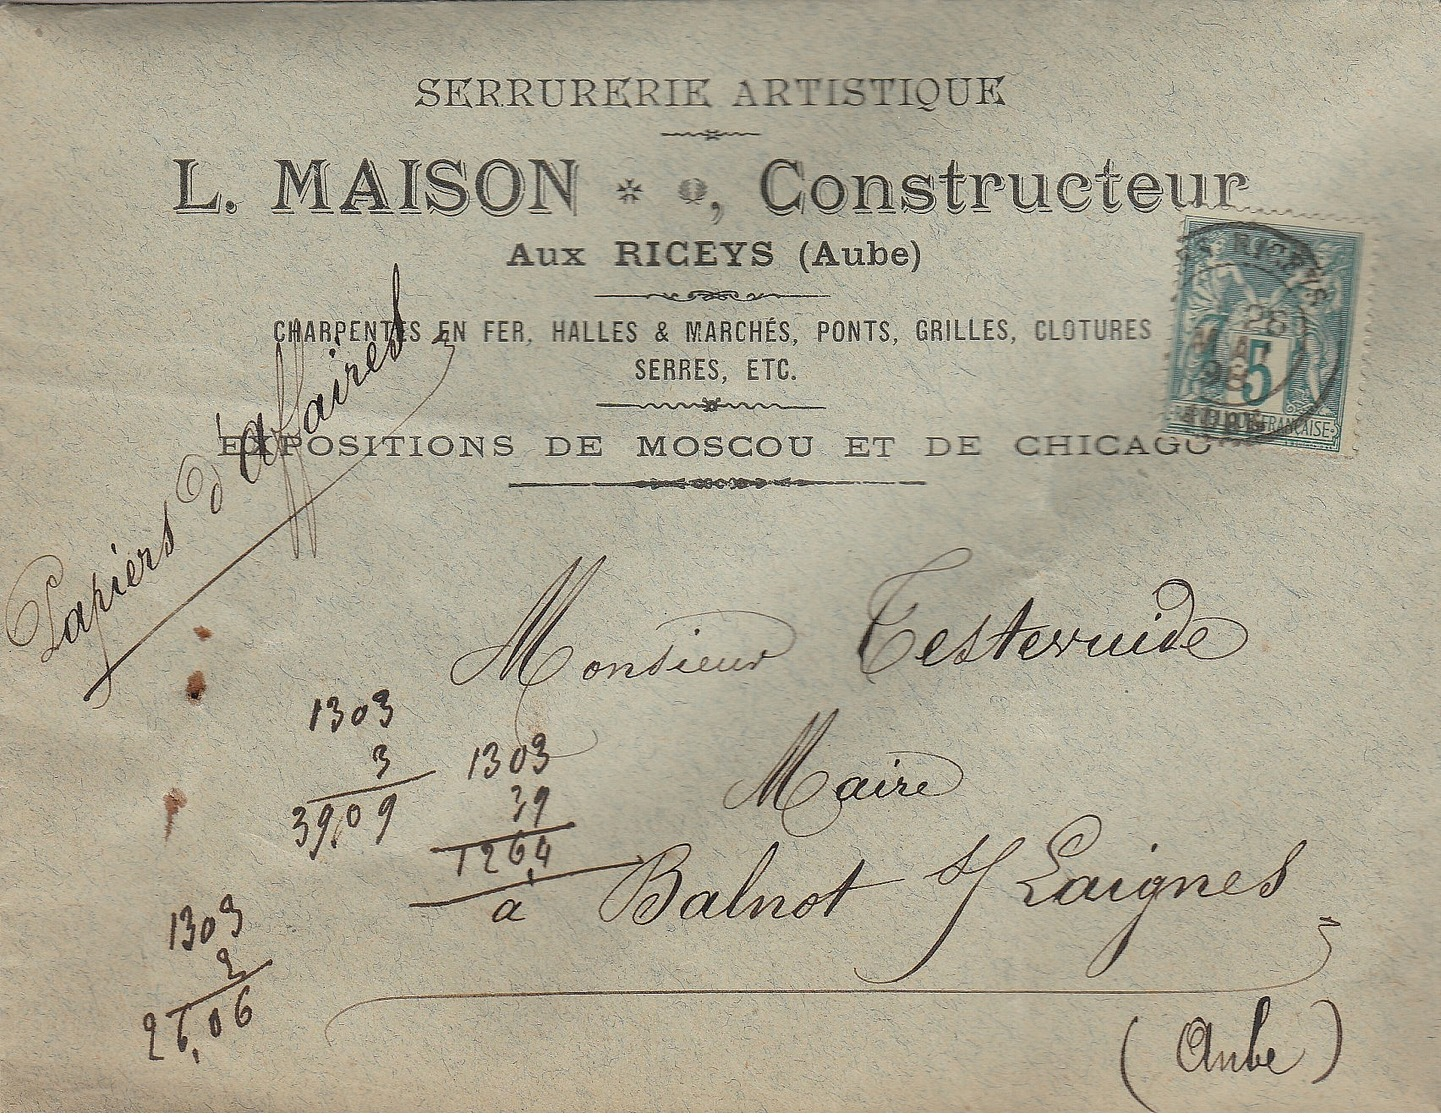 SERRURERIE ARTISTIQUE
L. MAISON , Constructeur
Aux RICEYS (Aube)
CHARPENTES EN FER, HALLES & MARCHÉS, PONTS, GRILLES, CLOTURES
SERRES, ETC.
EXPOSITIONS DE MOSCOU ET DE CHICAGO
RICEYS
26
98
5
FRANÇAISE
Papiers d'affaires
Monsieur Testevuide
Maire
à Balnot s/ Laignes
(Aube)
1303
3
39,09
1303
39
1264
1303
2
26,06